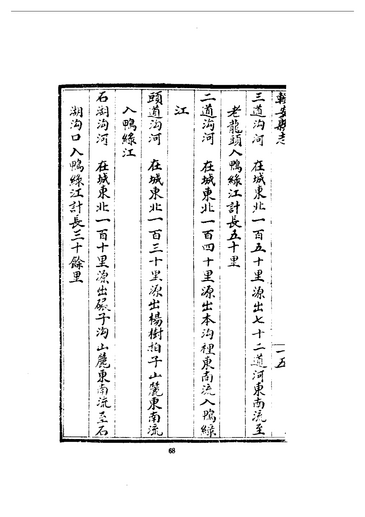 輯安縣志
三道沟河　在城東北一百五十里源出七十二道河東南流至
老龍頭入鴨綠江計長五十里
二道沟河　在城東北一百四十里源出本沟裡東南流入鴨綠
江
頭道沟河　在城東北一百三十里源出楊樹拍子山麓東南流
入鴨綠江
石湖沟河　在城東北一百十里源出碾子沟山麓東南流至石
湖沟口入鴨綠江計長三十餘里
68